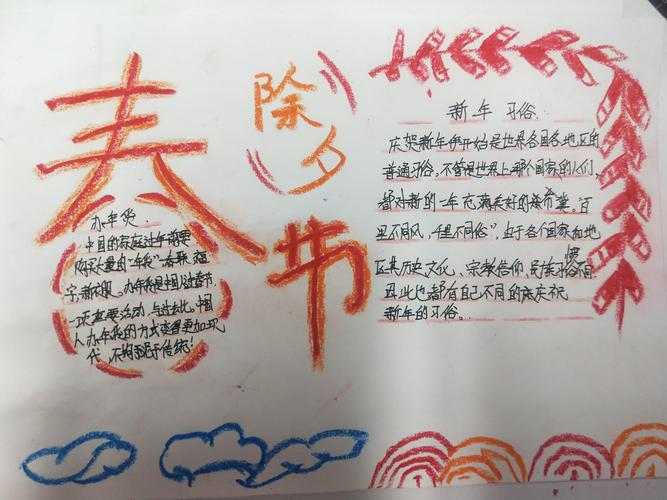 春
节
除夕
办年货
中国的家庭过年前要
购买大量的“年货”春联福
字,新衣服,办年货是中国人过春节
一项重要活动,与过去比,中国
人办年货的方式变得更加现
代,不拘泥于传统!
新年 习俗
庆贺新年伊开始是世界各国各地区的
普通习俗,不管是世界上那个国家的人们,
都对新的一年充满美好的希望。“百
里不同风,千里不同俗”,由于各个国家和地
区其历史、文化、宗教信仰、民族习惯不同
因此也都有自己不同的庆祝
新年的习俗。